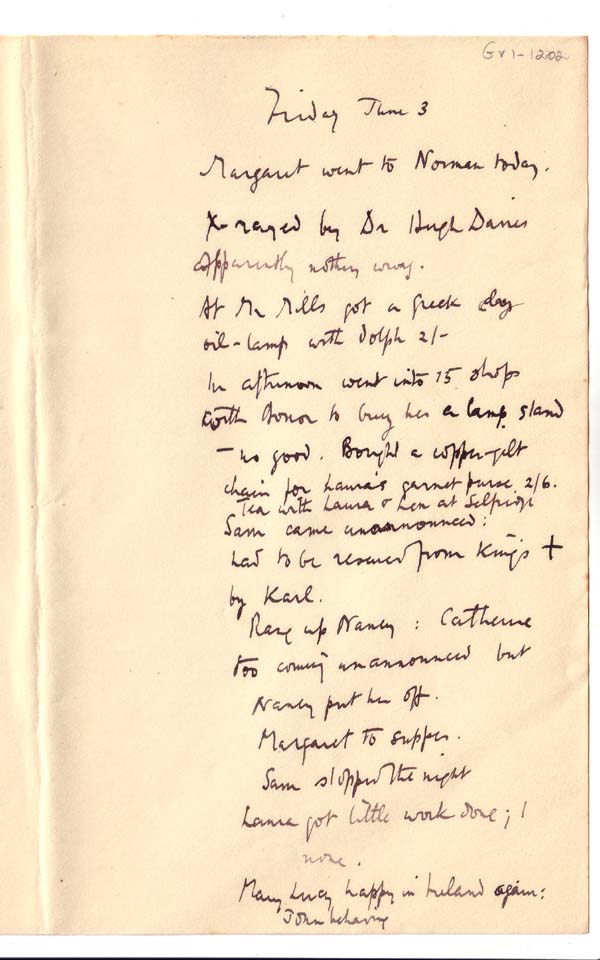 Gv1-1202
Friday June 3
Margaret went to Norman today.
X-rayed by Dr Hugh Davies
Apparently nothing wrong.
At Mr Mills got a Greek clay
oil-lamp with dolph 2/-
In afternoon went into 15 shops
with Honor to buy her a lamp stand
- no good. Bought a copper-gilt
chain for Laura's garnet purse 2/6.
Tea with Laura & Len at Selfridge
Sam came unannounced:
had to be rescued from King's +
by Karl.
Rang up Nancy: Catherine
too coming unannounced but
Nancy put her off.
Margaret to supper.
Sam stopped the night
Laura got little work done; I
none.
Mary Lucy happy in Ireland again:
John behaving